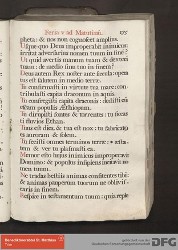 Feria v ad Matutinū.
pheta: & nos non cognoscet amplius.
Usque quo Deus improperabit inimicus:
irritat adversarius nomen tuum in fine?
Ut quid avertis manum tuam & dexteram
tuam: de medio sinu tuo in finem?
Deus autem Rex noster ante sæcula: opera
tus est salutem in medio terræ.
Tu confirmasti in virtute tua mare: con-
tribulasti capita draconum in aquis.
Tu confregisti capita draconis: dedisti eū
escam populis Æthiopum.
Tu dirupisti fontes & torrentes: tu siccas
ti fluvios Ethan.
Tuus est dies, & tua est nox: tu fabricatꝰ
es auroram & solem.
Tu fecisti omnes terminos terræ: æ-
tatem & ver tu plasmasti ea.
Memor esto huius inimicus improperavit
Domino: & populus insipiens incitavit no-
men tuum.
Ne tradas bestiis animas confitentes tibi:
& animas pauperum tuorum ne oblivi-
caris in finem.
Respice in testamentum tuum: quia reple